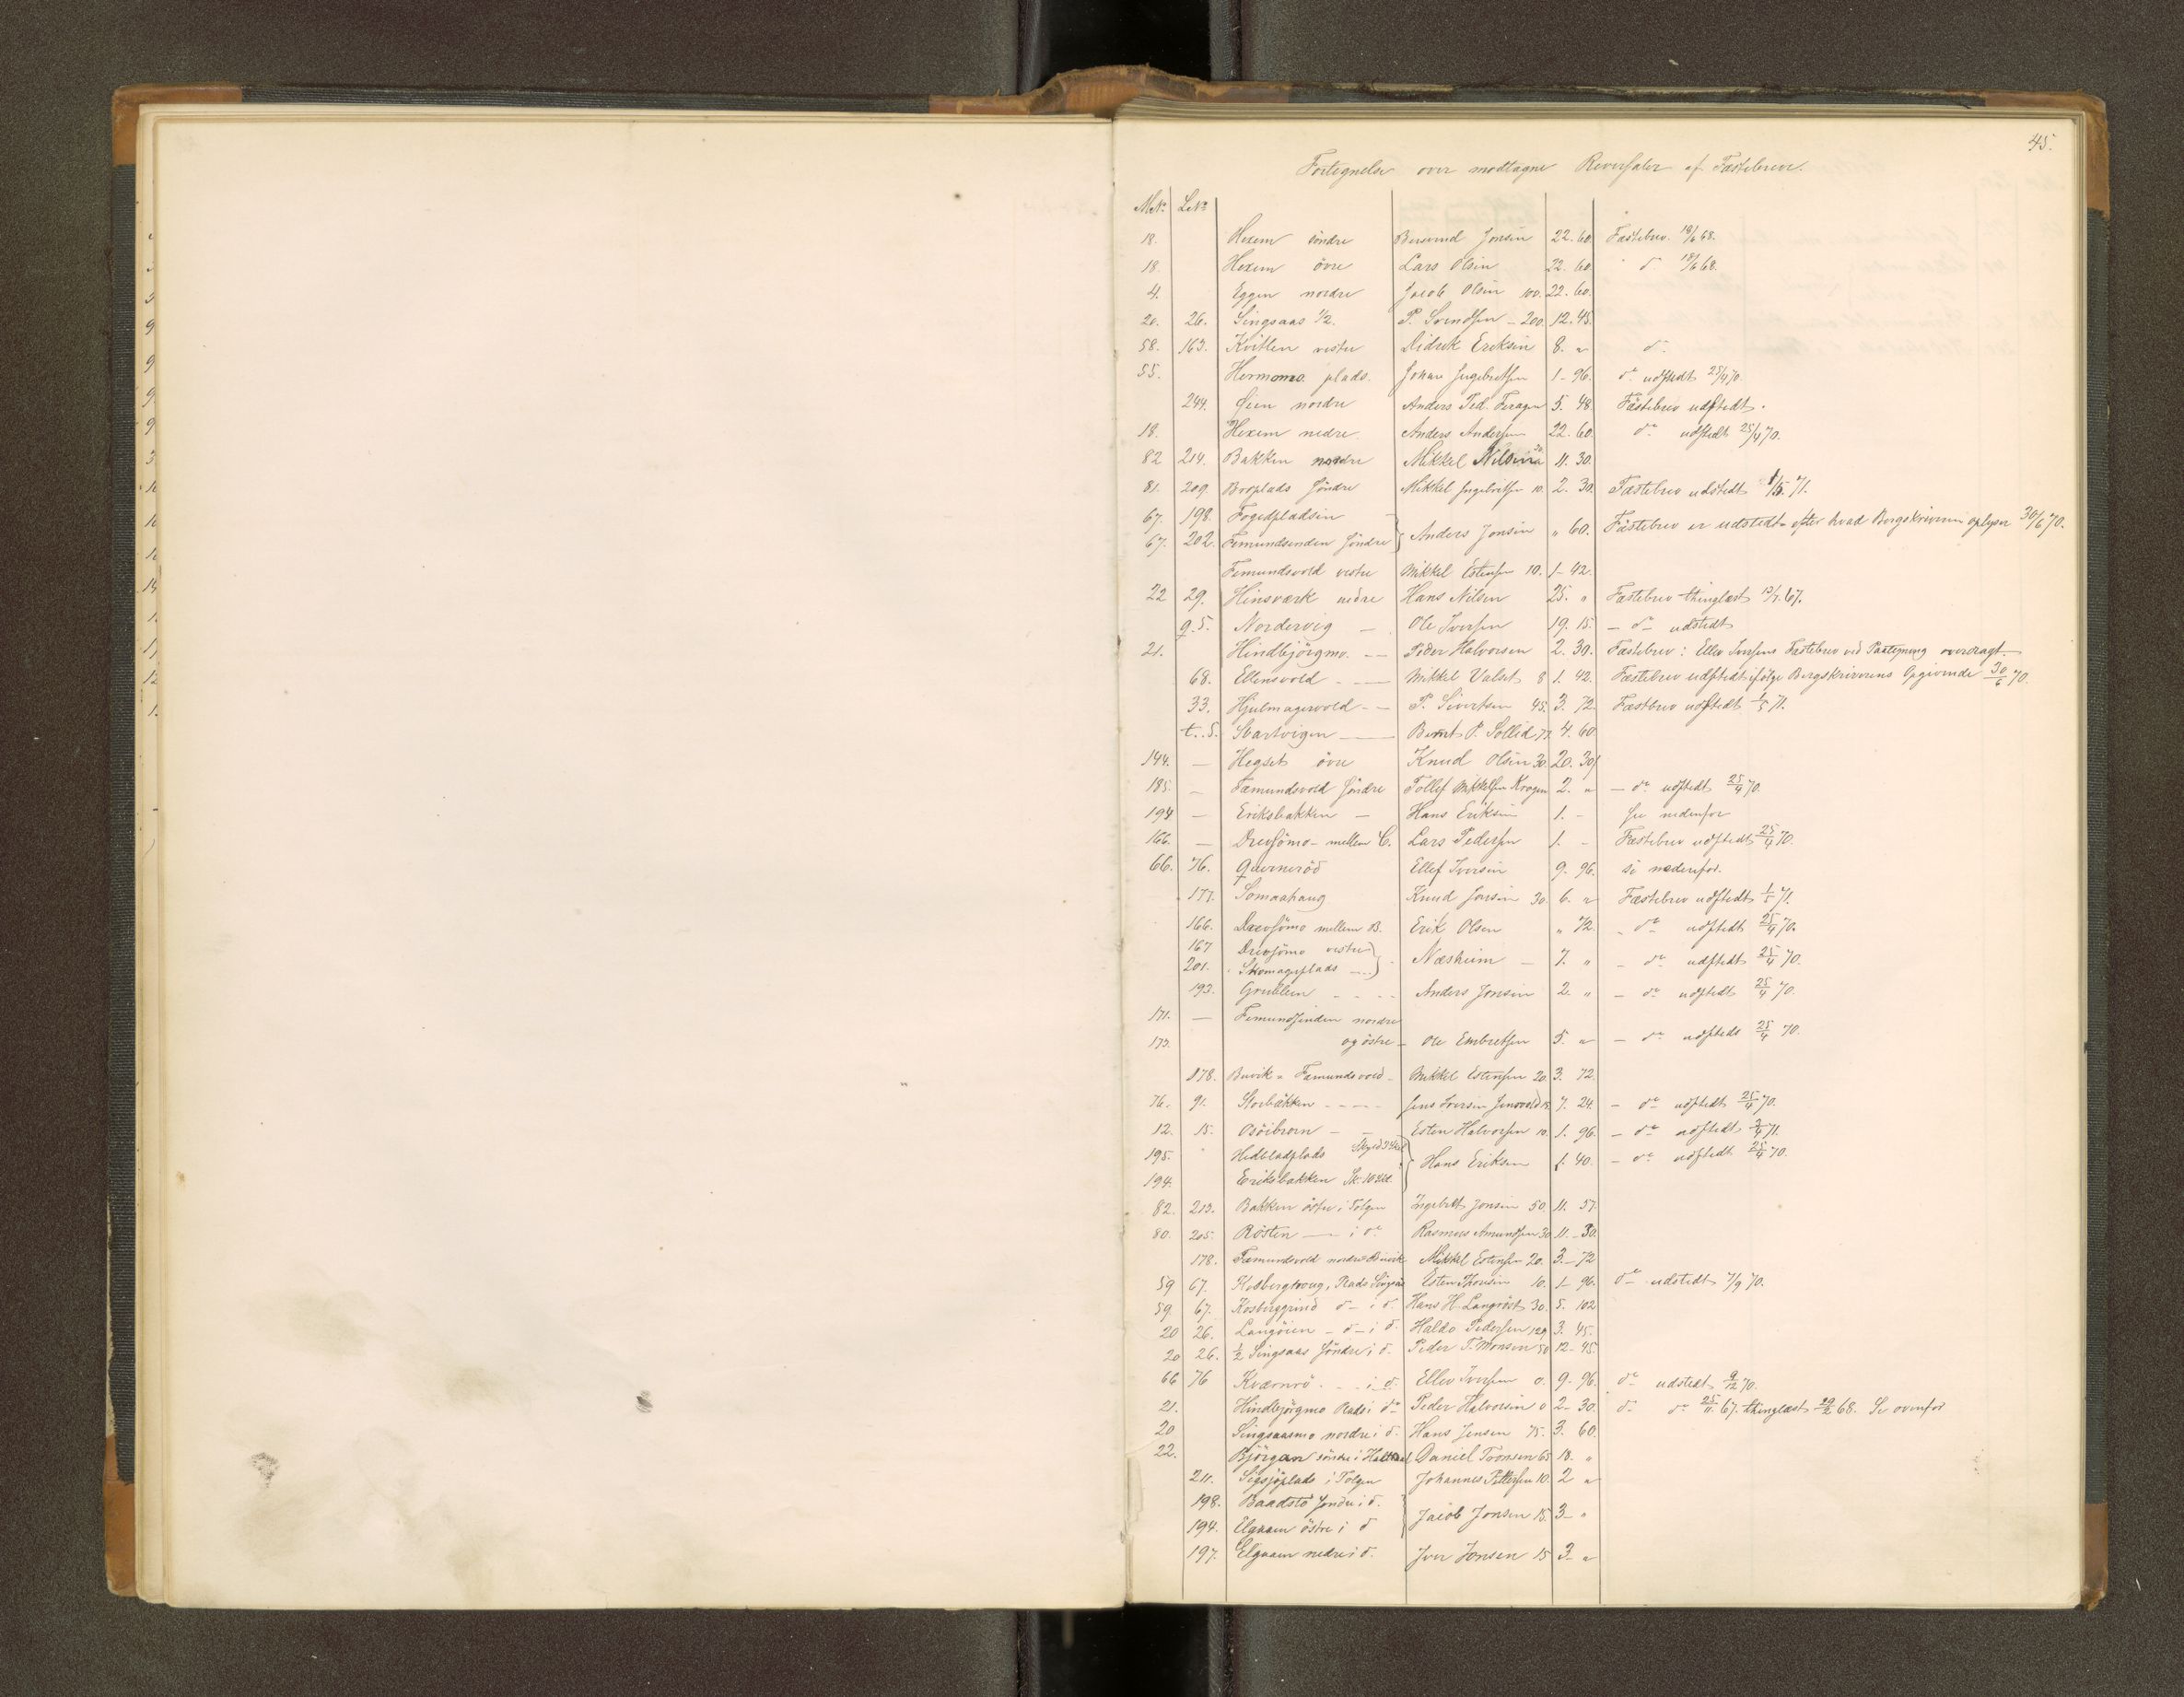 45.
Fortegnelse over modtagne Reversaler af Fæstebreve.
M.No. L.No.
18. Hexem söndre Berend Jonsen 22. 60. Fæstebrev. 18/6 68.
18. Hexem övre Lars Olsen 22. 60. do 18/6 68.
4. Eggen nordre Jacob Olsen 100. 22. 60.
20. 26. Singsaas 1/2. P. Svendsen - 200. 12. 45.
58. 163. Kvitlen vestre Didrik Eriksen 8. " do
55. Hermomo. plads. Johan Ingebretsen 1 - 96. do udstedt 25/4 70.
244. Öien nordre Anders Ped. Feragen 5. 48. Fæstebrev udstedt.
18. Hexem nedre Anders Andersen 22. 60. do udstedt 25/4 70.
82 214. Bakken nordre Mikkel Nilsen 11. 30.
81. 209. Broplads Söndre Mikkel Ingebretsen 10. 2. 30. Fæstebrev udstedt 1/5. 71.
67. 198. Fogedpladsen
67. 202. Femundsenden Söndre } Anders Jonsen " 60. Fæstebrev er udstedt efter hvad Bergskriveren oplyser 30/6 70.
Femundsvold vestre Mikkel Estensen 10. 1 - 42.
22 29. Hinsværk nedre Hans Nilsen 25. " Fæstebrev thinglæst 13/7. 67.
q. 5. Nordervig - Ole Iversen 19. 15. - do udstedt
21. Hindbjörgmo. - - Peder Halvorsen 2. 30. Fæstebrev: Ellev Iversens Fæstebrev ved Paategning overdragt
68. Ellensvold - - Mikkel Valset 8 1. 42. Fæstebrev udstedt ifölge Bergskriverens Opgivende 30/6 70.
33. Hjulmagervold - - P. Sivertsen 45. 3. 72 Fæstbrev udstedt 1/5 71.
t. 5. Svartvigen - Bernt P. Sollid 77. 4. 60
144. - Hegset övre Knud Olsen 30. 20. 30
185. - Fæmundsvold Söndre Tollef Mikkelsen Krogen 2. " - do udstedt 25/4 70.
194 - Eriksbakken - Hans Eriksen 1. - se nedenfor
166. - Drevsömo - mellem C. Lars Pedersen 1. - Fæstebrev udstedt 25/4 70.
66. 76. Qverneröd Ellef Iversen 9. 96. se nedenfor.
177. Somaahaug Knud Jonsen 30. 6. " Fæstebrev udstedt 1/5 71.
166. Drevsömo mellem B. Erik Olsen " 72. - do udstedt 25/4 70.
167 Drevsömo vestre
201. Skomagerplads - - } Næsheim - 7. " - do udstedt 25/4 70.
193. Grubben - - - - Anders Jonsen 2. " - do udstedt 25/4 70.
171. - Femundsenden nordre
173. og östre - Ole Embretsen 5. " - do udstedt 25/4 70.
178. Buvik " Fæmundsvold - Mikkel Estensen 20. 3. 72.
76. 91. Storbækken - - - - Jens Iversen 7. 24. - do udstedt 25/4 70.
12. 15. - - Esten Halvorsen 10. 1. 96. - do udstedt 3/4 71.
195. Hedbladplads
194. Eriksbakken Sk. 10 } Hans Eriksen 1. 40. - do udstedt 25/4 70.
82. 213. Bakken östre i Tolgen Ingebret Jonsen 50 11. 57.
80. 205. Rösten - i do Rasmus Amundsen 30 11. - 30.
178. Fæmundsvold nordre Buvik Mikkel Estensen 20. 3. - 72
59 67. Plads Singsaas Esten Thoresen 10. 1 - 96. do udstedt 7/9 70.
59. 67. Kosberggrind do i do. Hans H. Langröst 30. 5. 102
20 26. Langöien - do - i do. Haldo Pedersen 120 3. 45.
20 26. 1/2 Singsaas Söndre i do. Peder T. Monsen 50 12 - 45
66 76 Kværnrö - - i do. Ellev Iversen 0. 9 - 96. do udstedt 9/12 70.
21. Hindbjörgmo Plads i do Peder Halvorsen 0 2 - 30. do do 25/11. 67. thinglæst 29/2 68. Se ovenfor
20 Singsaasmo nordre i do. Hans Jensen 75. 3. 60.
22. Björgan söndre i Daniel Tronsen 65 18. "
211. Sigsjöplads i Tolgen Johannes Pettersen 10. 2 "
198. Baadstö Söndre i do.
194. Elgaaen östre i do } Jacob Jonsen 15. 3 - "
197. Elgaaen nedre i do. Iver Jonsen 15 3 - "